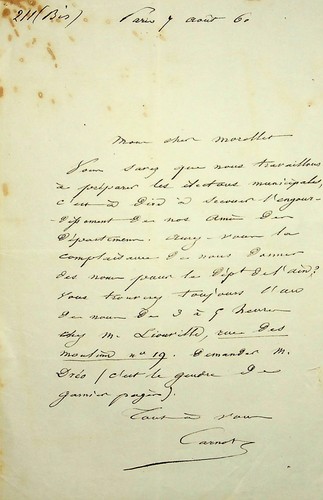 211 (Bis)
Paris 7 août 60
Mon cher Morellet
Vous savez que nous travaillons
à préparer les élections municipales,
c'est à dire à secouer l'engour-
-dissement de nos amis des
départemens. Auriez-vous la
complaisance de nous donner
des noms pour le Dépt de l'ain?
Vous trouverez toujours l'un
de nous de 3 à 5 heures
chez M. Liouville, rue des
moulins no 19. Demander M.
Dréo (c'est le gendre de
garnier pagès).
Tout à vous
Carnot